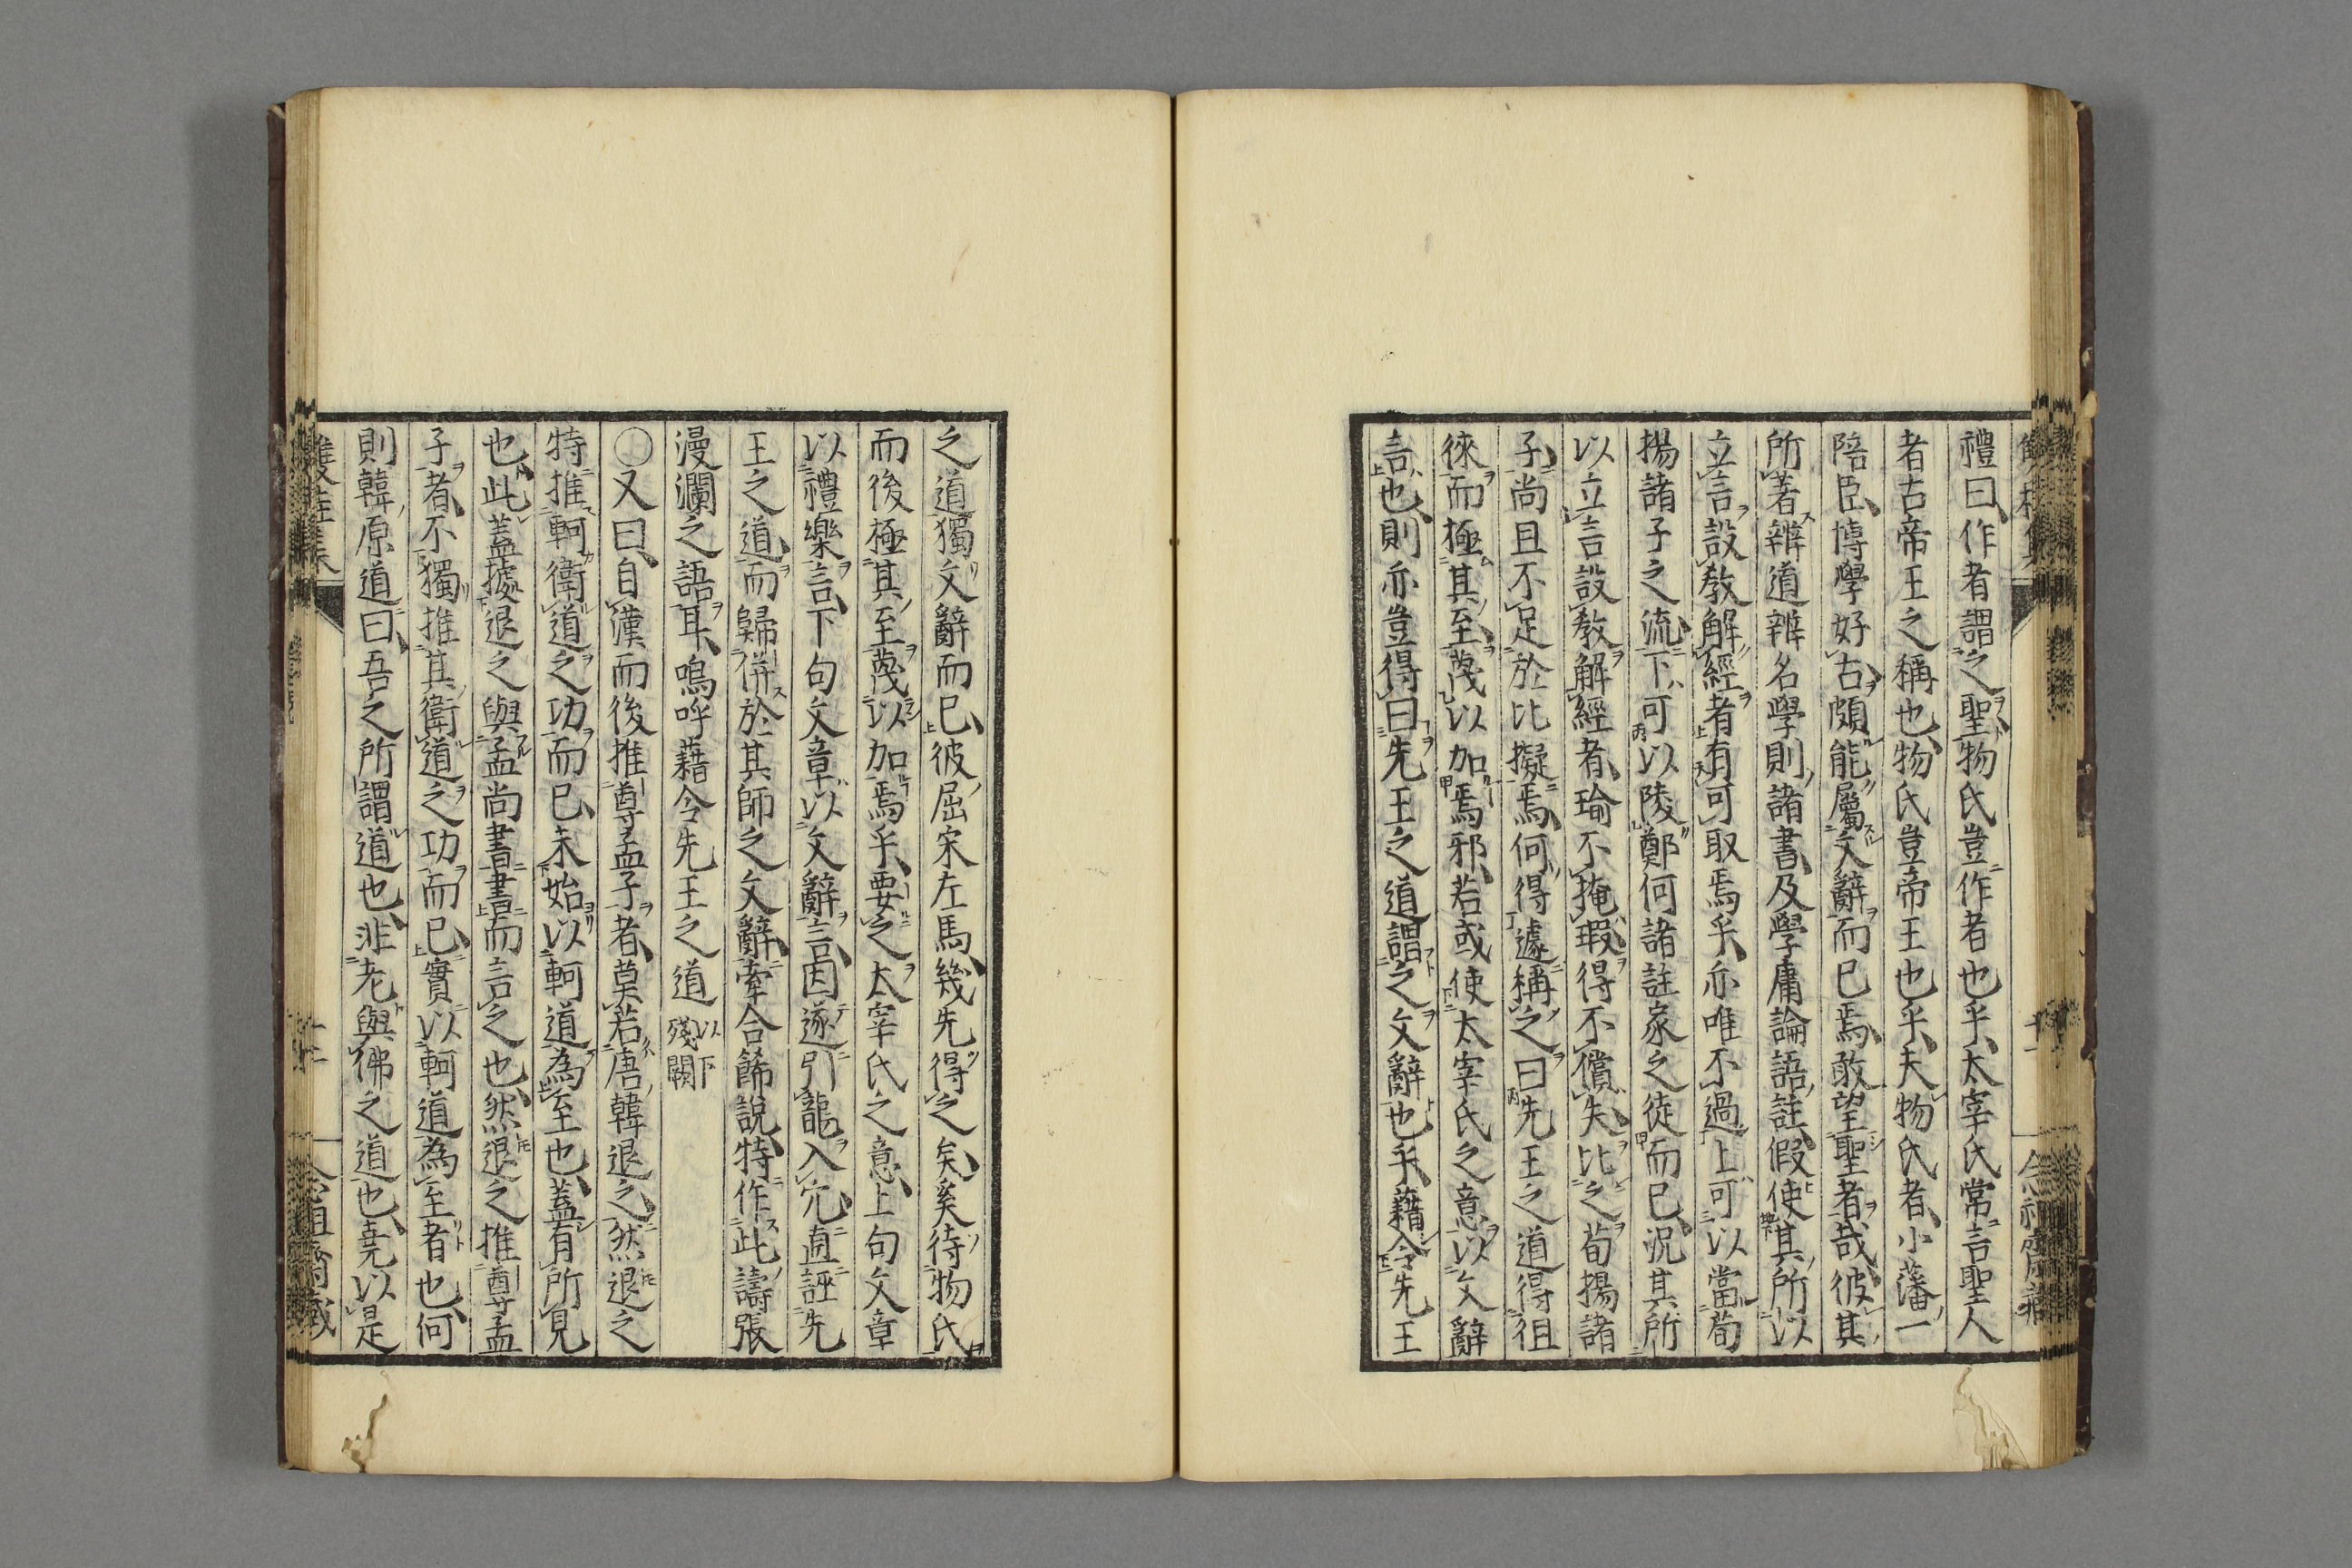 禮曰作者謂之聖物氏豈作者也乎太宰氏常言聖人
者古帝王之稱也物氏豈帝王也乎夫物氏者小藩一
陪臣博學好古頗能屬文辭而已焉敢望聖者哉彼其
所著辨道辨名學則諸書及學庸論語註假使其所以
立言設教解經者有可取焉乎亦唯不過上可以當荀
揚諸子之流下可以陵鄭何諸註家之徒而已況其所
以立言設教解經者瑜不掩瑕得不償失比之荀揚諸
子尚且不足於比擬焉何得遽稱之曰先王之道得徂
徠而極其至蔑以加焉邪若或使太宰氏之意以文辭
言也則亦豈得曰先王之道謂之文辭也乎藉令先王
之道獨文辭而已彼屈宋左馬幾先得之矣奚待物氏
而後極其至蔑以加焉乎要之太宰氏之意上句文章
以禮樂言下句文章以文辭言因遂引龍入穴直誣先
王之道而歸併於其師之文辭牽合篩說特作此譸張
漫瀾之語耳嗚呼藉令先王之道以下殘闕
○又曰自漢而後推尊孟子者莫若唐韓退之然退之
特推軻衛道之功而已未始以軻道為至也蓋有所見
也此蓋據退之與孟尚書書而言之也然退之推尊孟
子者不獨推其衛道之功而已實以軻道為至者也何
則韓原道曰吾之所謂道也非老與佛之道也堯以是